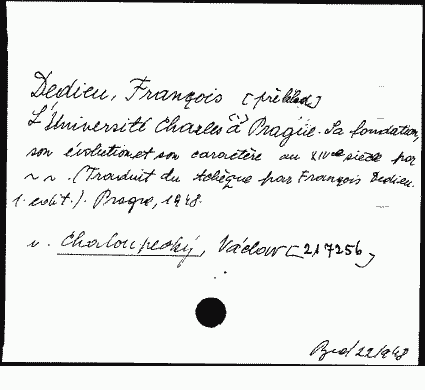 Dedieu, François [překlad]
L'Université Charles à Prague. Sa fondation,
son évolution et son caractère au XIVe siècle par
~ ~. (Traduit du tchèque par François Dedieu.
1. edit.). Prague, 1948.
v. Chaloupecký, Václav [217256]
22/948